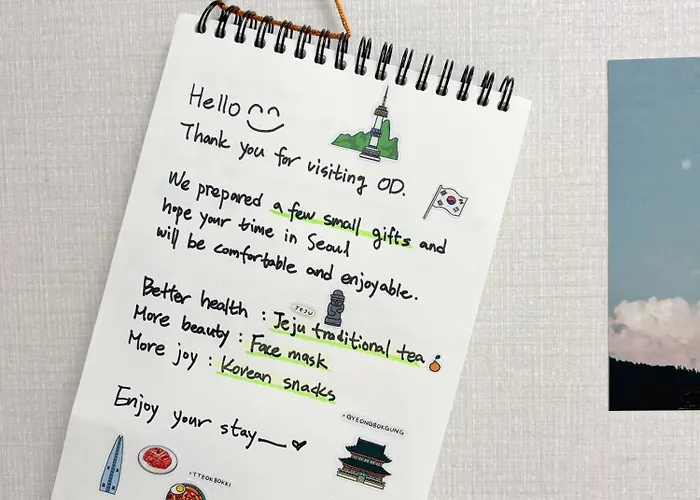 Hello
Thank you for visiting OD.
We prepared a few small gifts and
hope your time in Seoul
will be comfortable and enjoyable.
JEJU
Better health : Jeju traditional tea
More beauty : Face mask
More joy : Korean snacks
Enjoy your stay
GYEONGBOKGUNG
TTEOKBOKKI